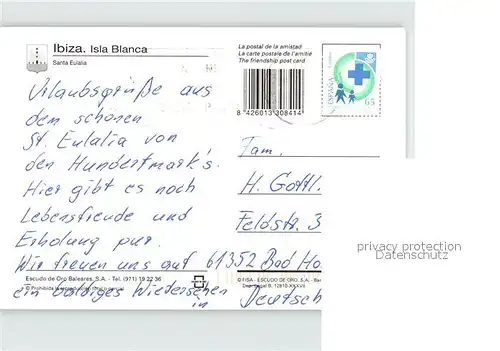 Ibiza. Isla Blanca
Santa Eulalia
La postal de la amistad
La carte postale de l'amitié
The friendship post card
8 426013 308414
ESPAÑA
65
Urlaubsgrüße aus
dem schönen
St. Eulalia von
den Hundertmark's.
Hier gibt es noch
Lebensfreude und
Erholung pur.
Wir freuen uns auf
ein baldiges Wiedersehen
in
Fam.
H. Gottl.
Feldstr. 3
61352 Bad Ho
Deutsch
Escudo de Oro Baleares, S.A. - Tel. (971) 19 22 36
© Prohibida la reproducción total o parcial
© FISA - ESCUDO DE ORO, S.A. - Bar
Dep. Legal B. 12810-XXXVII
privacy protection
Datenschutz